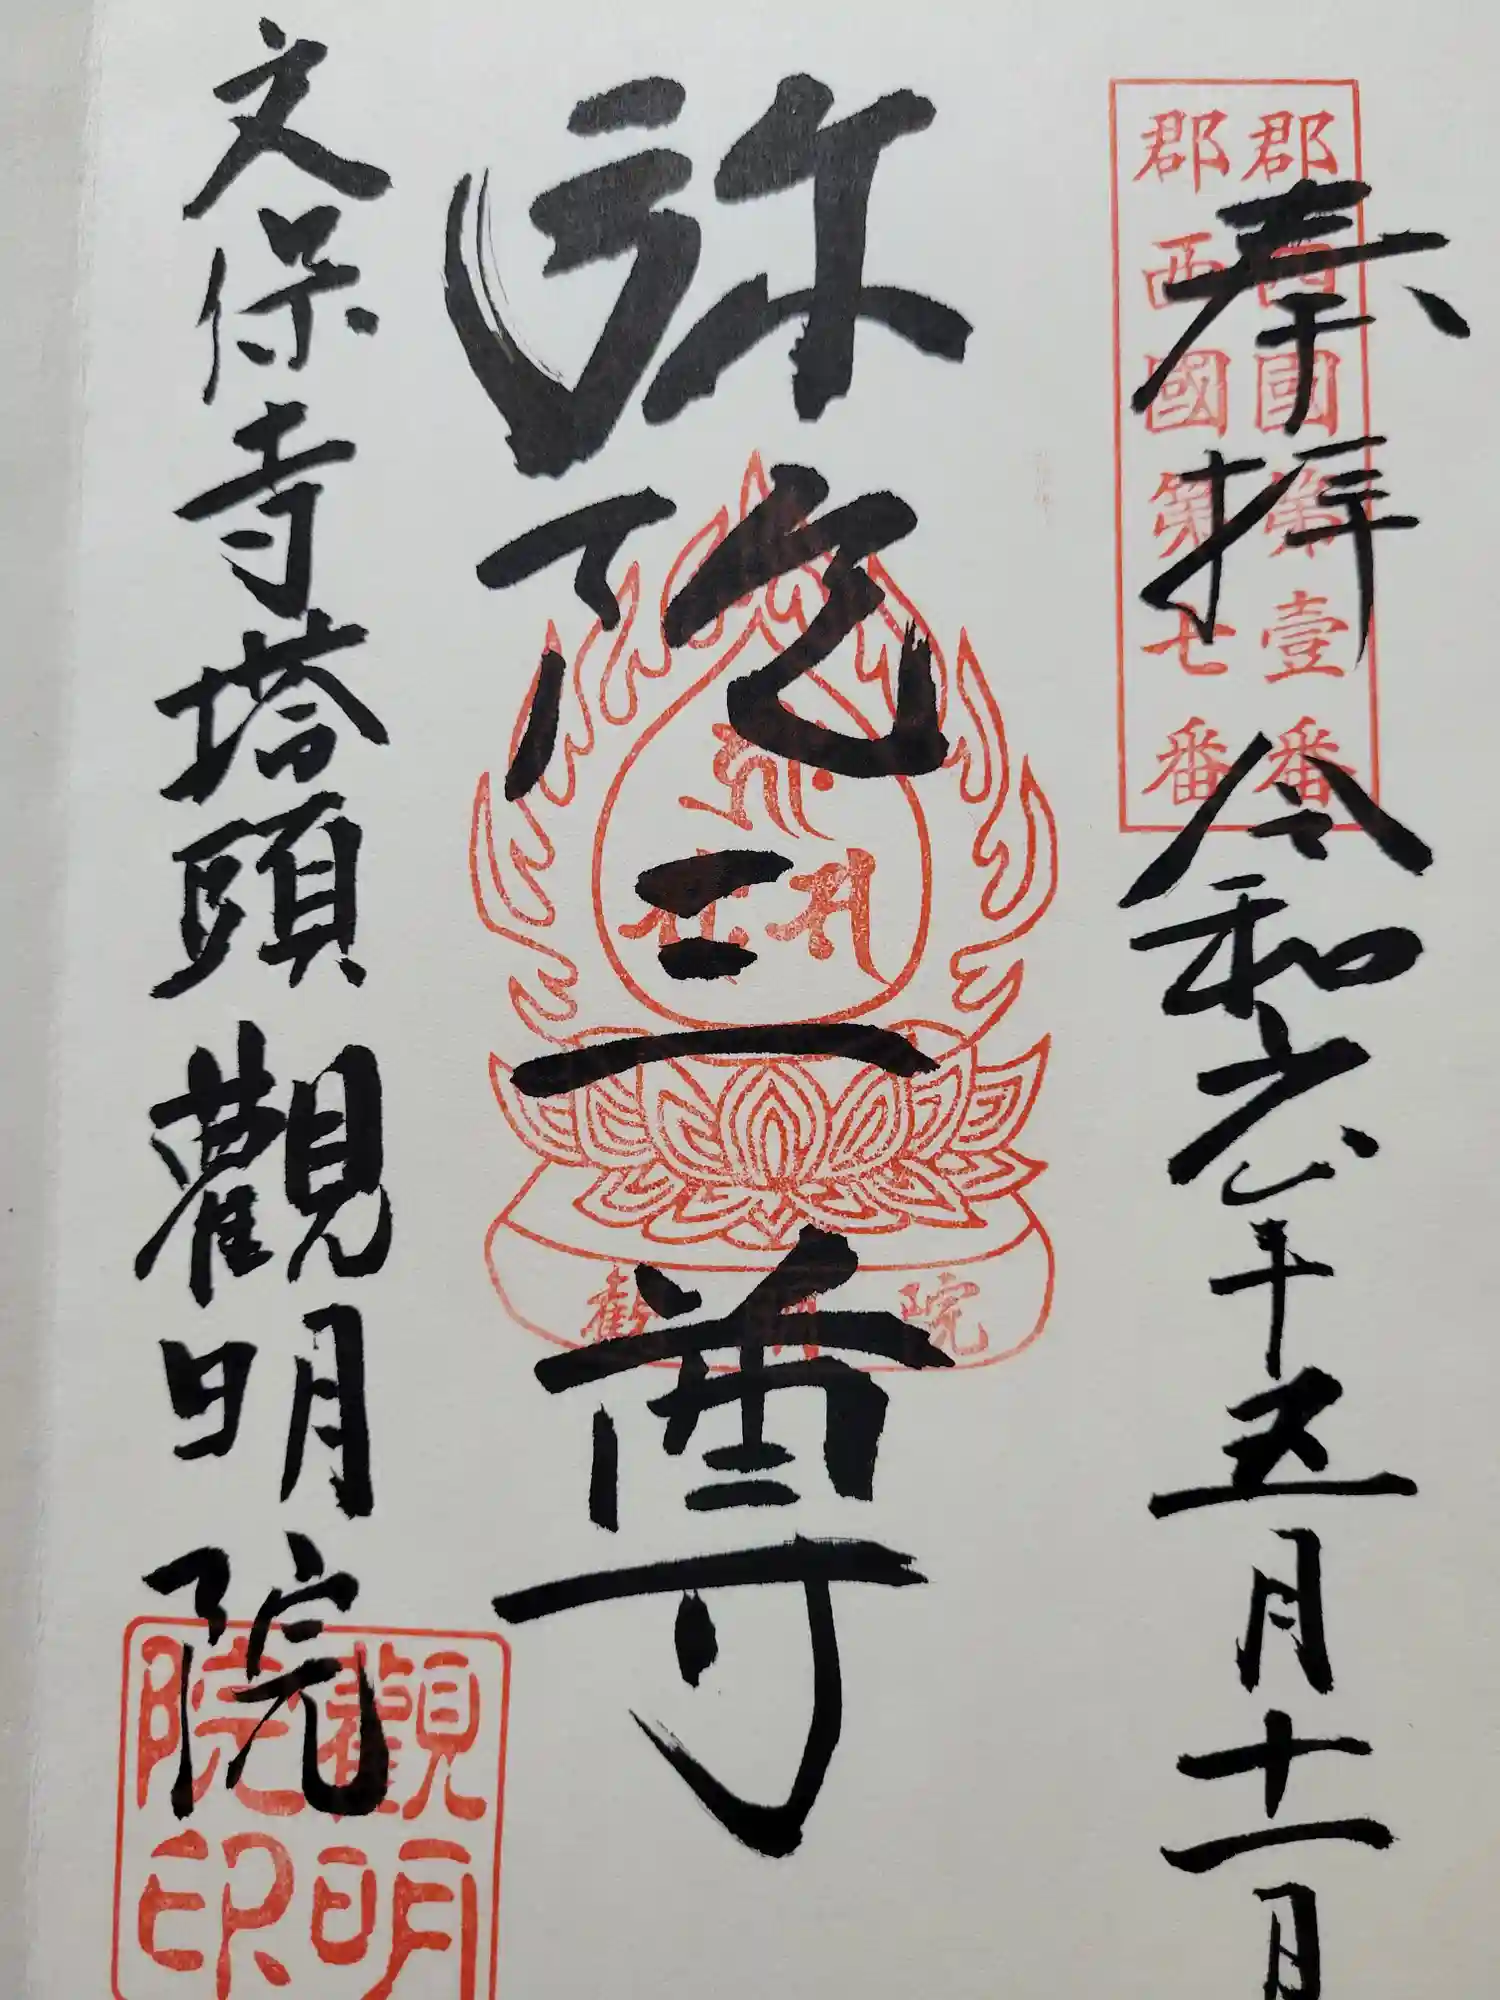 郡西國第壹番
郡西國第七番
奉拝 令和六年五月十一日
弥陀三尊
觀明院
文保寺塔頭 觀明院
觀明
院印